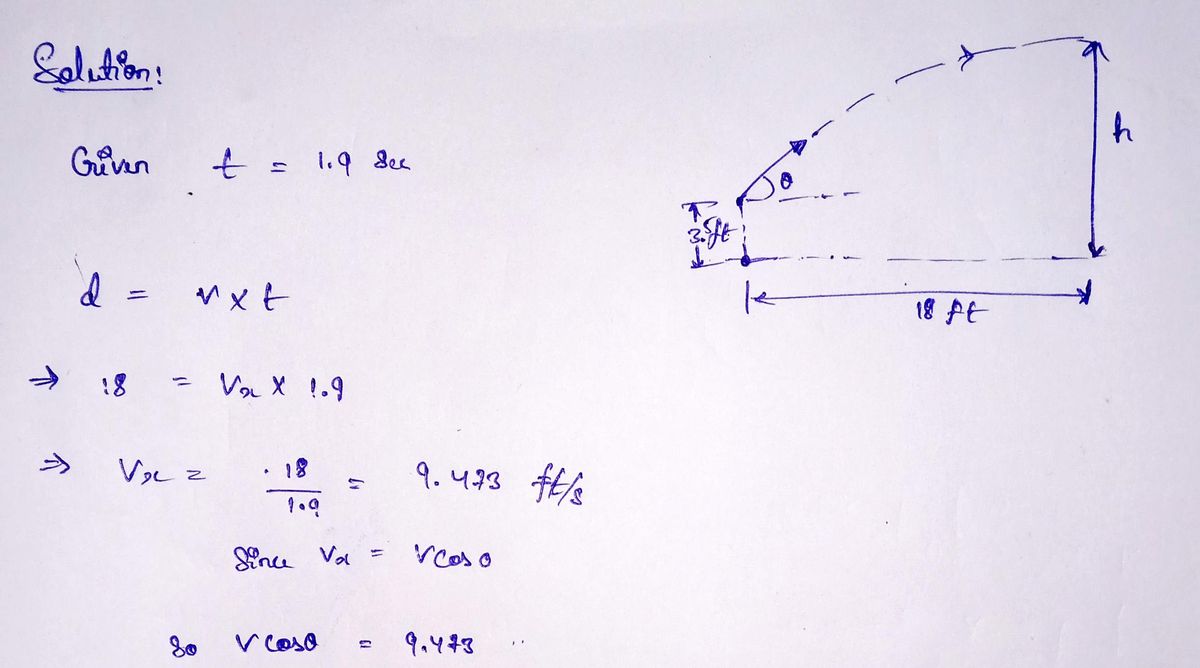 Solution:
Given t = 1.9 Sec
d = v x t
⇒ 18 = Vx X 1.9
⇒ Vx = 18/1.9 = 9.473 ft/s
Since Vx = V Cos θ
So V Cos θ = 9.473
θ
3.5ft
h
18 ft